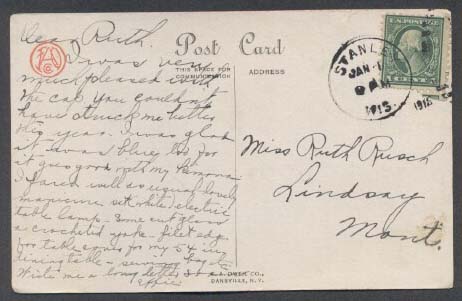 Dear Ruth.
I was very
much pleased with
the cap. You couldn't
have struck me better
this year. I was glad
it was blue, too for
it goes good with my
I fared well as usual, lovely
manicure set, white, electric
table lamp - some cut glass
a crocheted yoke - filet edge
for table cover for my 54 in
dining table -
Write me a long letter
Effie
Post Card
THIS SPACE FOR
COMMUNICATION
ADDRESS
F. A. OWEN CO.,
DANSVILLE, N.Y.
STANLEY
JAN
WIS.
1918
U.S. POSTAGE
1 CENT 1
Miss Ruth Rusch
Lindsay
Mont.